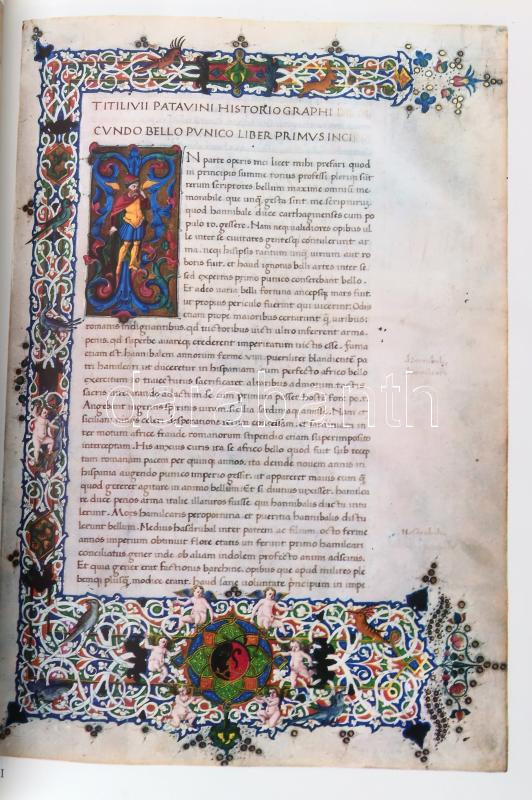 TITI LIVII PATAVINI HISTORIOGRAPHI
CVNDO BELLO PVNICO LIBER PRIMVS INCI
N parte operis mei licet mihi prefari quod
in principio summe totius professi plerique sunt
rerum scriptores bellum maxime omnium me
morabile que unq gesta sint me scripturum
quod hannibale duce carthaginenses cum po
pulo ro. gessere. Nam neq ualidiores opibus ul
le inter se ciuitates gentesq contulerunt ar
ma. neq his ipsis tantum unq uirium aut ro
boris fuit. et haud ignotis belli artes inter se
sed expertas primo punico conserebant bello.
Et adeo uaria belli fortuna ancepsq mars fuit
ut propius periculo fuerint qui uicerunt. Odiis
etiam prope maioribus certarunt q uiribus:
romanis indignantibus, qd uictoribus uicti ultro inferrent arma.
penis, qd superbe auareq crederent imperitatum uictis esse. fama
etiam est hannibalem annorum ferme
tri hamilcari ut duceretur in hispaniam cum perfecto africo bello
exercitum traiecturus sacrificaret altaribus admotum tactis
sacris
Angebat
siciliam nimis celeri desperatione rerum concessam, et
ter motum africe fraude romanorum stipendio etiam superimposito
interceptam. His anxius curis ita se africo bello quod fuit sub recep
tam romanam pacem per quinq annos. ita deinde nouem annis in
hispania augendo punico imperio gessit. ut appareret maius eum q
quod gereret agitare in animo bellum. Et si diutius uixisset. hamilca
re duce penos arma italie illaturos fuisse, qui hannibalis ductu intu
lerunt. Mors hamilcaris peroportuna et pueritia hannibalis distu
lerunt bellum. Medius hasdrubal inter patrem ac filium. octo ferme
annos imperium obtinuit flore etatis uti ferunt primo hamilcari
conciliatus gener inde ob aliam indolem profecto animi adscitus.
Et quia gener erat factionis barchine. opibus que apud milites ple
bemq plusq modice erant. haud sane uoluntate principum in impe
darabanth
I